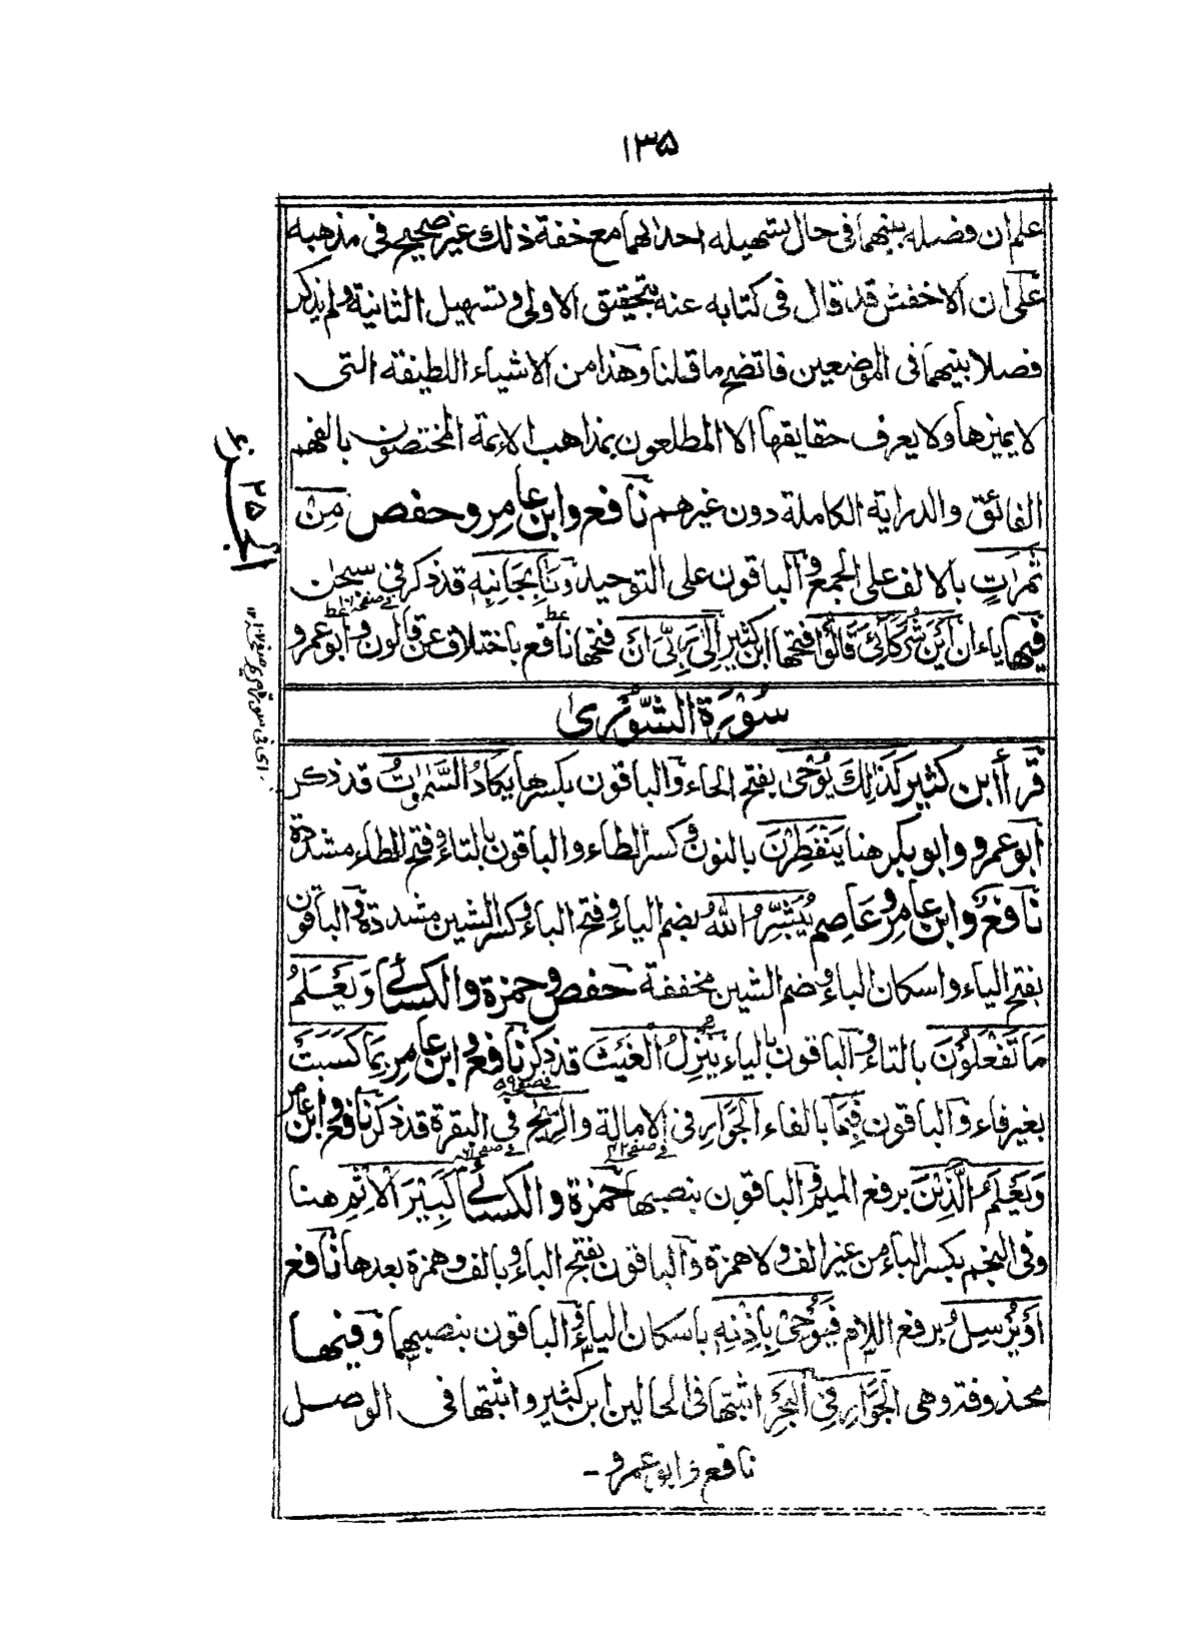 ۱۳۵
علم ان فصله بينهما فى حال تسهيله احدٰهما مع خفة ذلك غير صحيح فى مذهبه
على ان الاخفش قد قال فى كتابه عنه بتحقيق الاولى وتسهيل الثانية ولم يذكر
فصلا بينهما فى الموضعين فاتضح ما قلنا وهذا من الاشياء اللطيفة التى
لا يميزها ولا يعرف حقايقها الا المطلعون بمذاهب الائمة المختصون بالفهم
الفائق والدراية الكاملة دون غيرهم نافع وابن عامر وحفص مِنْ
ثَمَرَاتٍ بالالف على الجمع والباقون على التوحيد وَنَاٰ بِجَانِبِهٖ قد ذكر فى سبحٰن
فيها ياءان اَيْنَ شُرَكَائِىْ قَالُوْا فتحها ابن كثير اِلٰى رَبِّىْ اِنَّ فتحها نافع باختلاف عن قالون وابو عمرو
الجزء ۲۵
سُوْرَةُ الشُّوْرىٰ
قرأ ابن كثير كَذٰلِكَ يُوْحٰى بفتح الحاء والباقون بكسرها يَكَادُ السَّمٰوٰتُ قد ذكر
ابو عمرو وابو بكر هنا يَنْفَطِرْنَ بالنون وكسر الطاء والباقون بالتاء وفتح الطاء مشددة
نافع وابن عامر وعاصم يُبَشِّرُ اللّٰهُ بضم الياء وفتح الباء وكسر الشين مشددة والباقون
بفتح الياء واسكان الباء وضم الشين مخففة حفص وحمزة والكسائى وَيَعْلَمُ
مَا تَفْعَلُوْنَ بالتاء والباقون بالياء يُنَزِّلُ الْغَيْثَ قد ذكر نافع وابن عامر بِمَا كَسَبَتْ
بغير فاء والباقون فَبِمَا بالفاء الْجَوَارِ فى الامالة والرِّيْحَ فى البقرة قد ذكر نافع وابن عامر
وَيَعْلَمُ الَّذِيْنَ برفع الميم والباقون بنصبها حمزة والكسائى كَبِيْرَ الْاِثْمِ هنا
وفى النجم بكسر الباء من غير الف ولا همزة والباقون بفتح الباء وبالف وهمزة بعدها نافع
اَوْ يُرْسِلُ برفع اللام فَيُوْحِىْ بِاِذْنِهٖ باسكان الياء والباقون بنصبهما وفيها
محذوفة وهى الْجَوَارِ فِى الْبَحْرِ اثبتها فى الحالين ابن كثير واثبتها فى الوصل
نافع وابو عمرو -